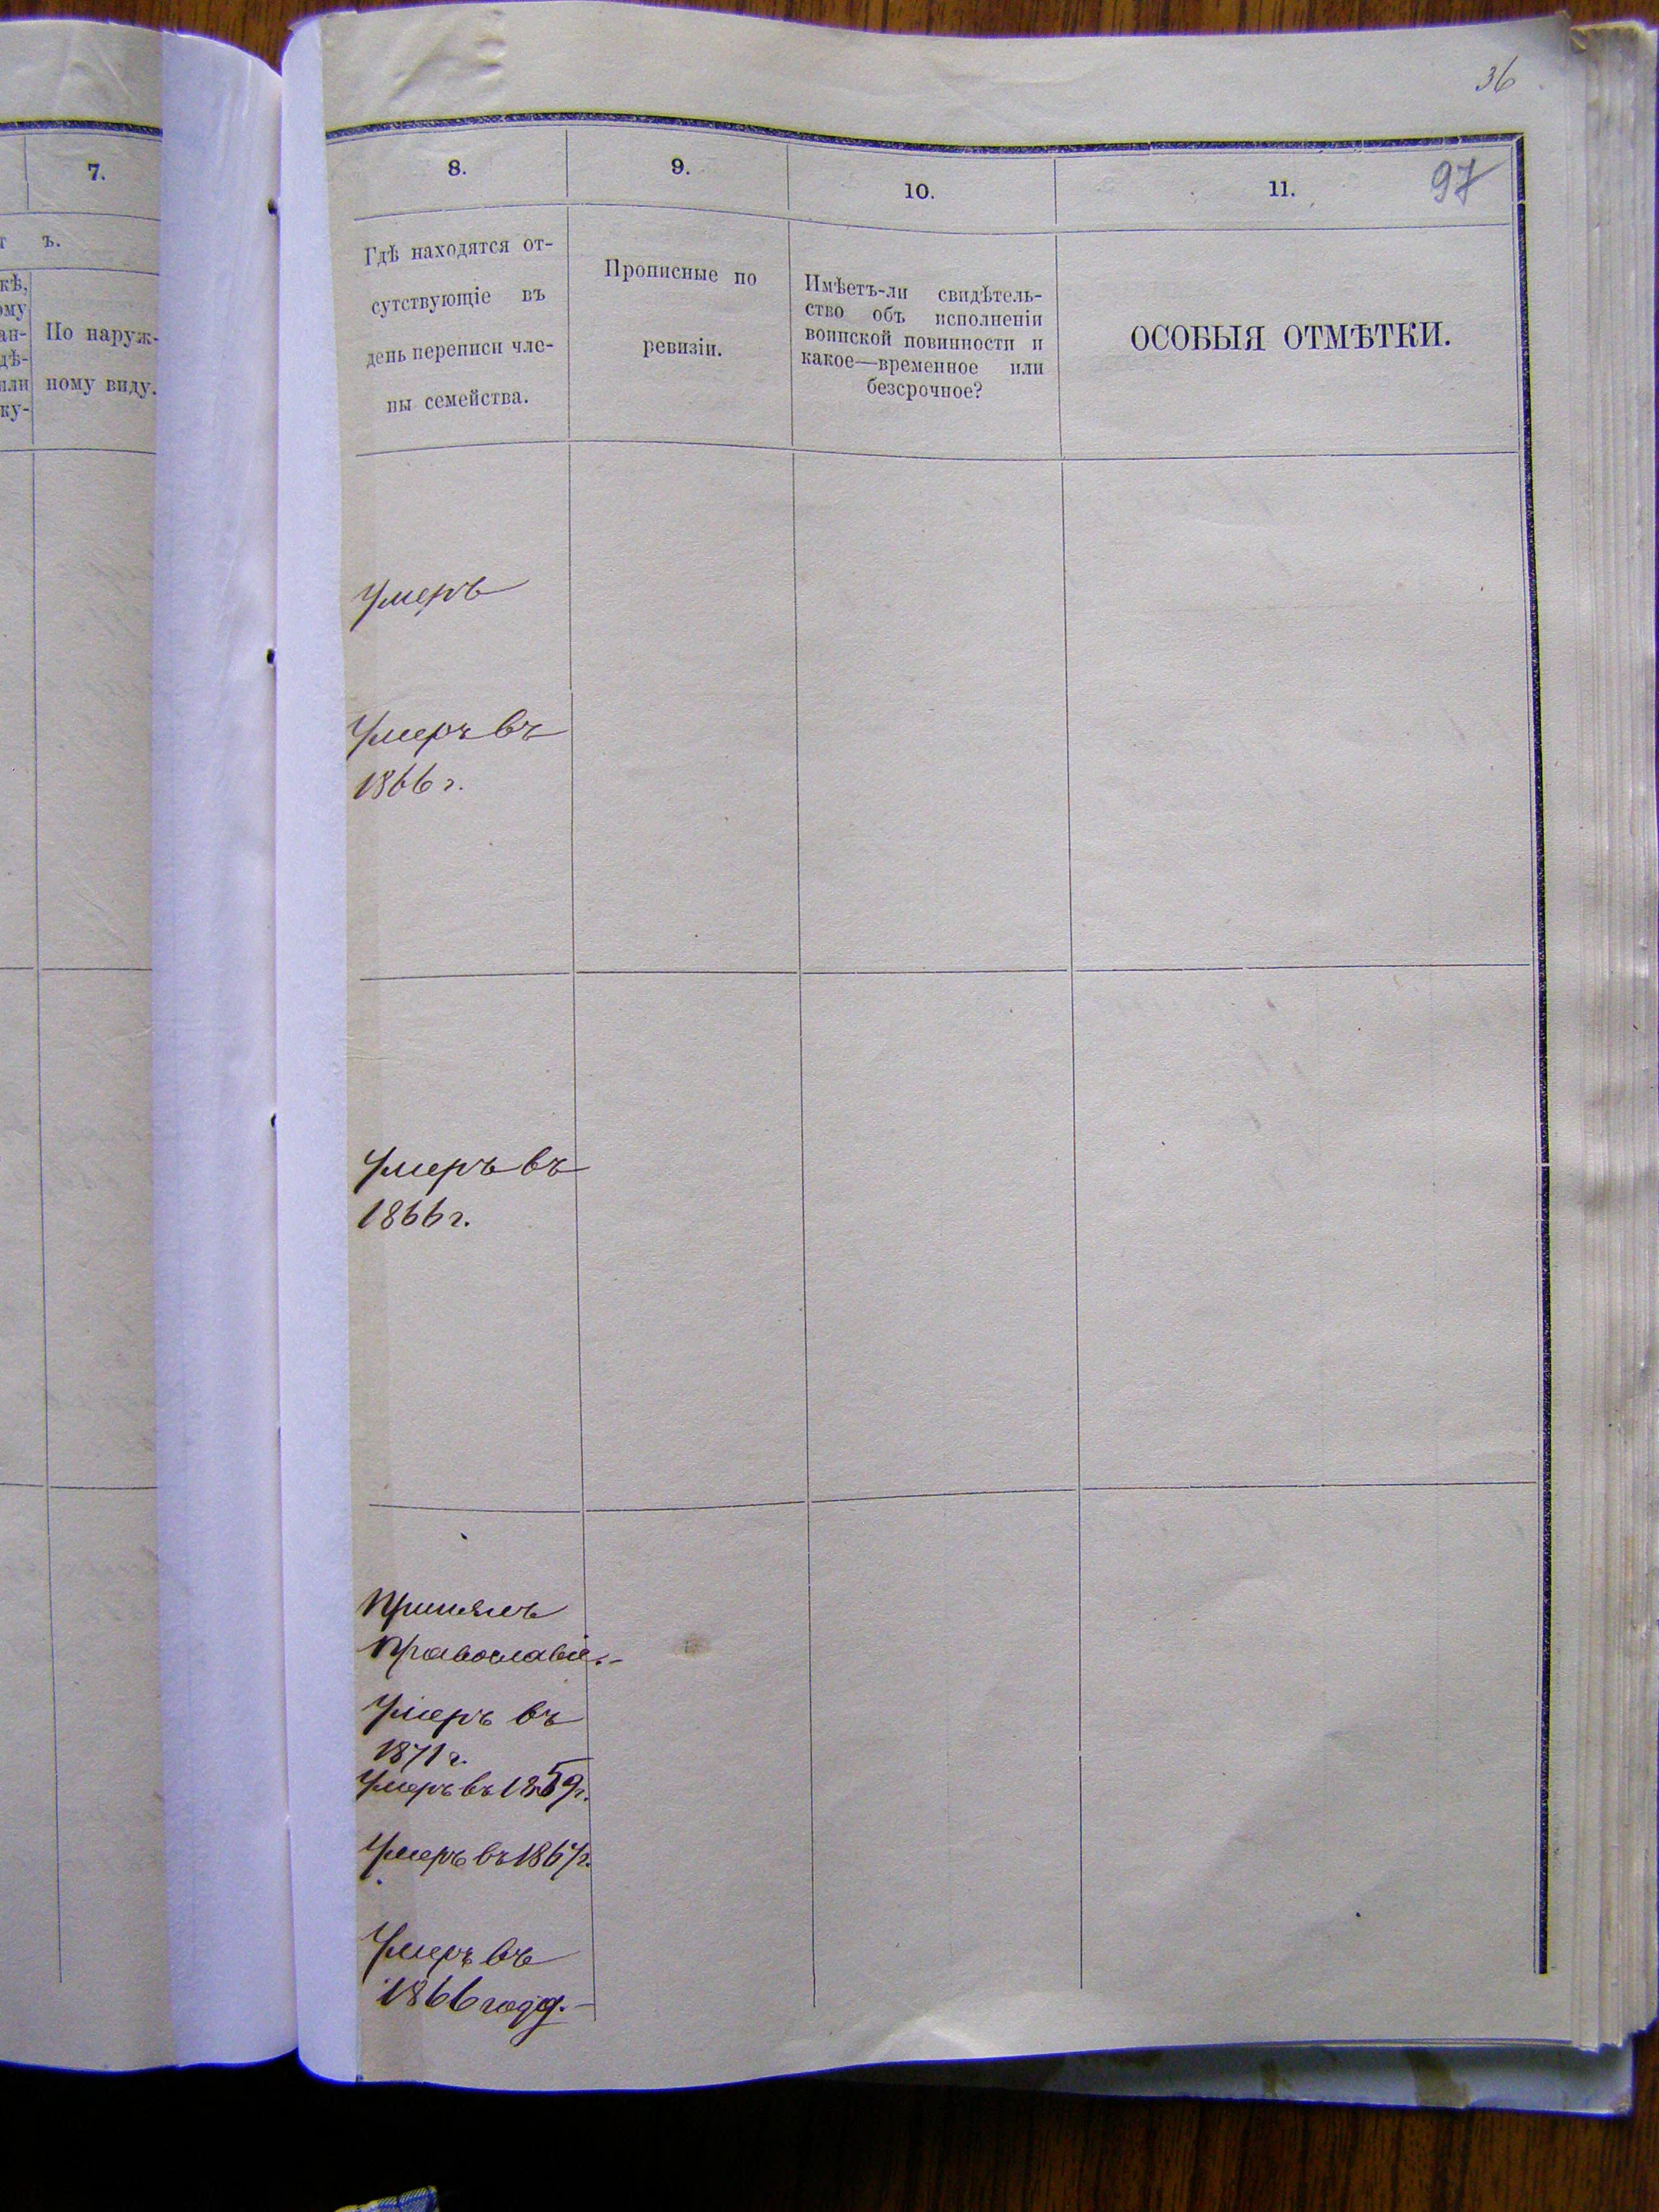 36
7.
ъ.
кѣ,
ому
ан-
дѣ-
или
ку-
По наруж-
ному виду.
8.
9.
10.
11.
97
Гдѣ находятся от-
сутствующіе въ
день переписи чле-
ны семейства.
Прописные по
ревизіи.
Имѣетъ-ли свидѣтель-
ство объ исполненіи
воинской повинности и
какое—временное или
безсрочное?
ОСОБЫЯ ОТМѢТКИ.
Умеръ
Умеръ въ
1866 г.
Умеръ въ
1866 г.
Принялъ
Православіе.-
Умеръ въ
1871 г.
Умеръ въ 1859 г.
Умеръ въ 1867 г.
Умеръ въ
1866 году.-